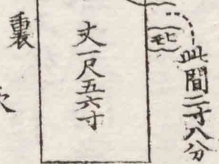 此間二寸八分
ヒモ
丈一尺五六寸
裏